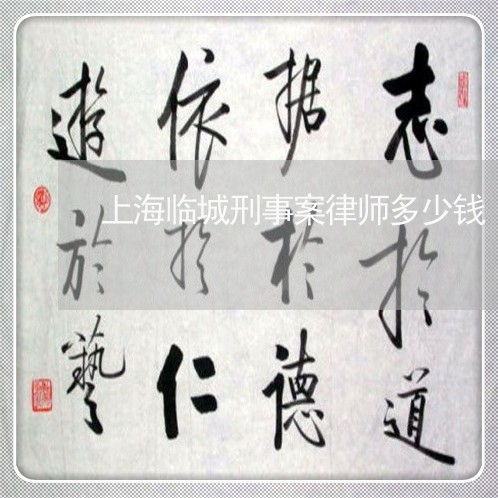 志於道
据於德
依於仁
遊於藝
上海临城刑事案律师多少钱